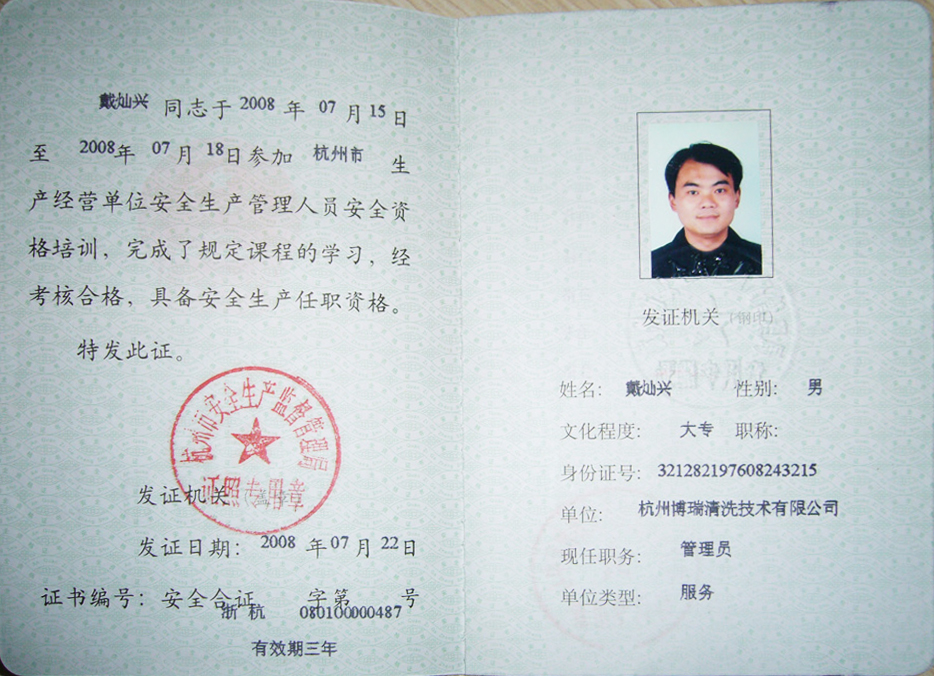 戴灿兴 同志于 2008 年 07 月 15 日
至 2008年 07 月 18日参加 杭州市 生
产经营单位安全生产管理人员安全资
格培训，完成了规定课程的学习，经
考核合格，具备安全生产任职资格。
特发此证。
杭州市安全生产监督管理局
证照专用章
发证机关
发证日期： 2008 年 07 月 22 日
证书编号：安全合证 字第 号
浙 杭 080100000487
有效期三年
发证机关（钢印）
姓名： 戴灿兴 性别： 男
文化程度： 大专 职称：
身份证号： 321282197608243215
单位： 杭州博瑞清洗技术有限公司
现任职务： 管理员
单位类型： 服务